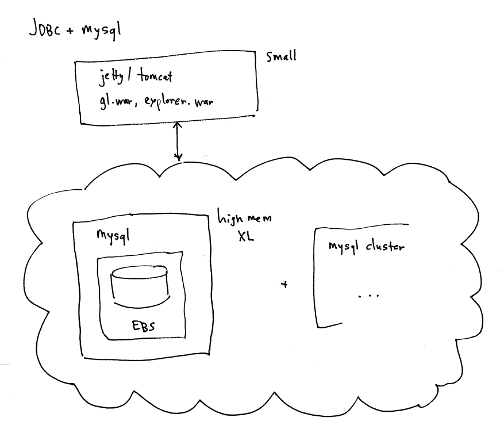 JDBC + mysql
small
jetty/tomcat
gl.war, explorer.war
high mem
XL
mysql
EBS
+
mysql cluster
...